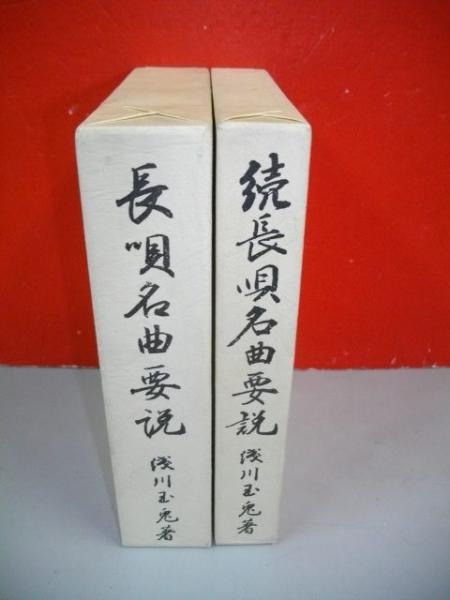 長唄名曲要説
浅川玉兎著
続長唄名曲要説
浅川玉兎著